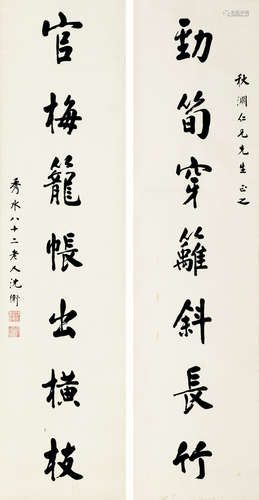 秋澗仁兄先生正之
勁筍穿籬斜長竹
官梅籠帳出橫枝
秀水八十二老人沈衛